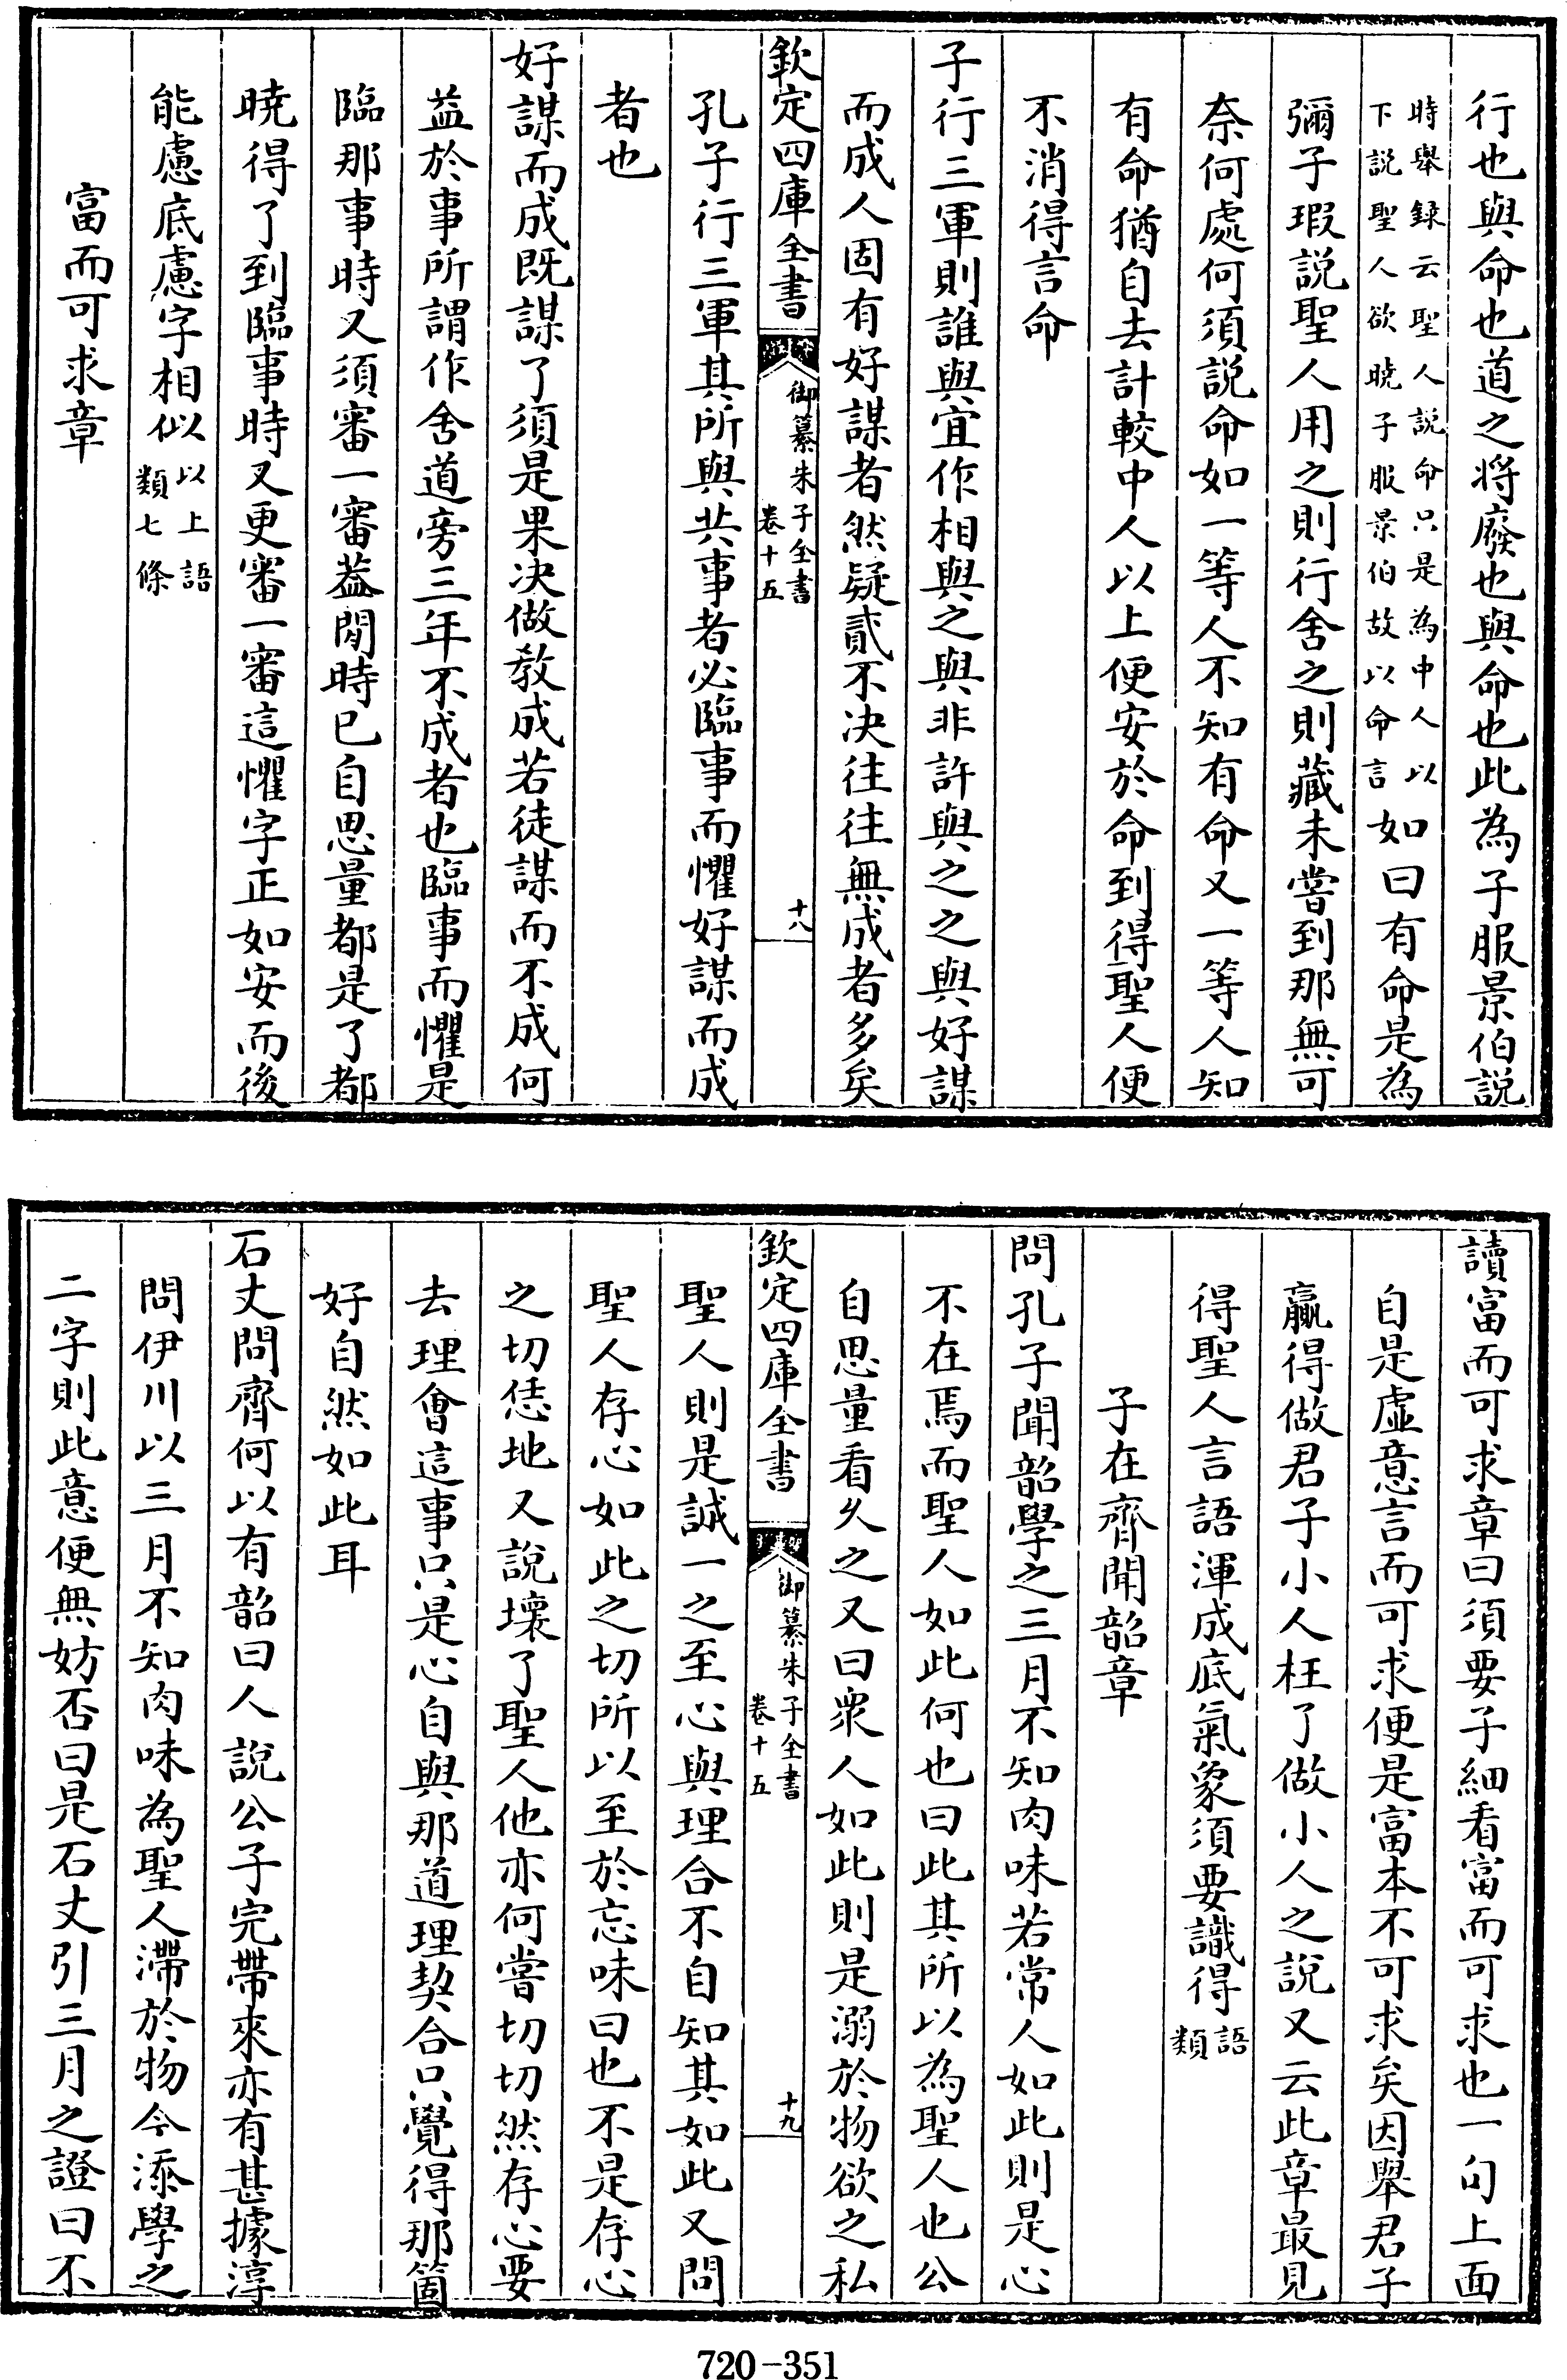 行也與命也道之將廢也與命也此為子服景伯說
時舉録云聖人説命只是為中人以
下説聖人欲曉子服景伯故以命言如曰有命是為
彌子瑕説聖人用之則行舍之則藏未嘗到那無可
奈何處何須説命如一等人不知有命又一等人知
有命猶自去計較中人以上便安於命到得聖人便
不消得言命
子行三軍則誰與宜作相與之與非許與之之與好謀
而成人固有好謀者然疑貳不决往往無成者多矣
欽定四庫全書
御纂朱子全書
卷十五
十八
孔子行三軍其所與共事者必臨事而懼好謀而成
者也
好謀而成既謀了須是果决做教成若徒謀而不成何
益於事所謂作舍道旁三年不成者也臨事而懼是
臨那事時又須審一審葢閒時已自思量都是了都
曉得了到臨事時又更審一審這懼字正如安而後
能慮底慮字相似以上語
類七條
富而可求章
讀富而可求章曰須要子細看富而可求也一句上面
自是虚意言而可求便是富本不可求矣因舉君子
贏得做君子小人枉了做小人之說又云此章最見
得聖人言語渾成底氣象須要識得語
類
子在齊聞韶章
問孔子聞韶學之三月不知肉味若常人如此則是心
不在焉而聖人如此何也曰此其所以為聖人也公
自思量看久之又曰衆人如此則是溺於物欲之私
欽定四庫全書
御纂朱子全書
卷十五
十九
聖人則是誠一之至心與理合不自知其如此又問
聖人存心如此之切所以至於忘味曰也不是存心
之切恁地又說壞了聖人他亦何嘗切切然存心要
去理會這事只是心自與那道理契合只覺得那箇
好自然如此耳
石丈問齊何以有韶曰人說公子完帶來亦有甚據淳
問伊川以三月不知肉味為聖人滯於物今添學之
二字則此意便無妨否曰是石丈引三月之證曰不
720-351